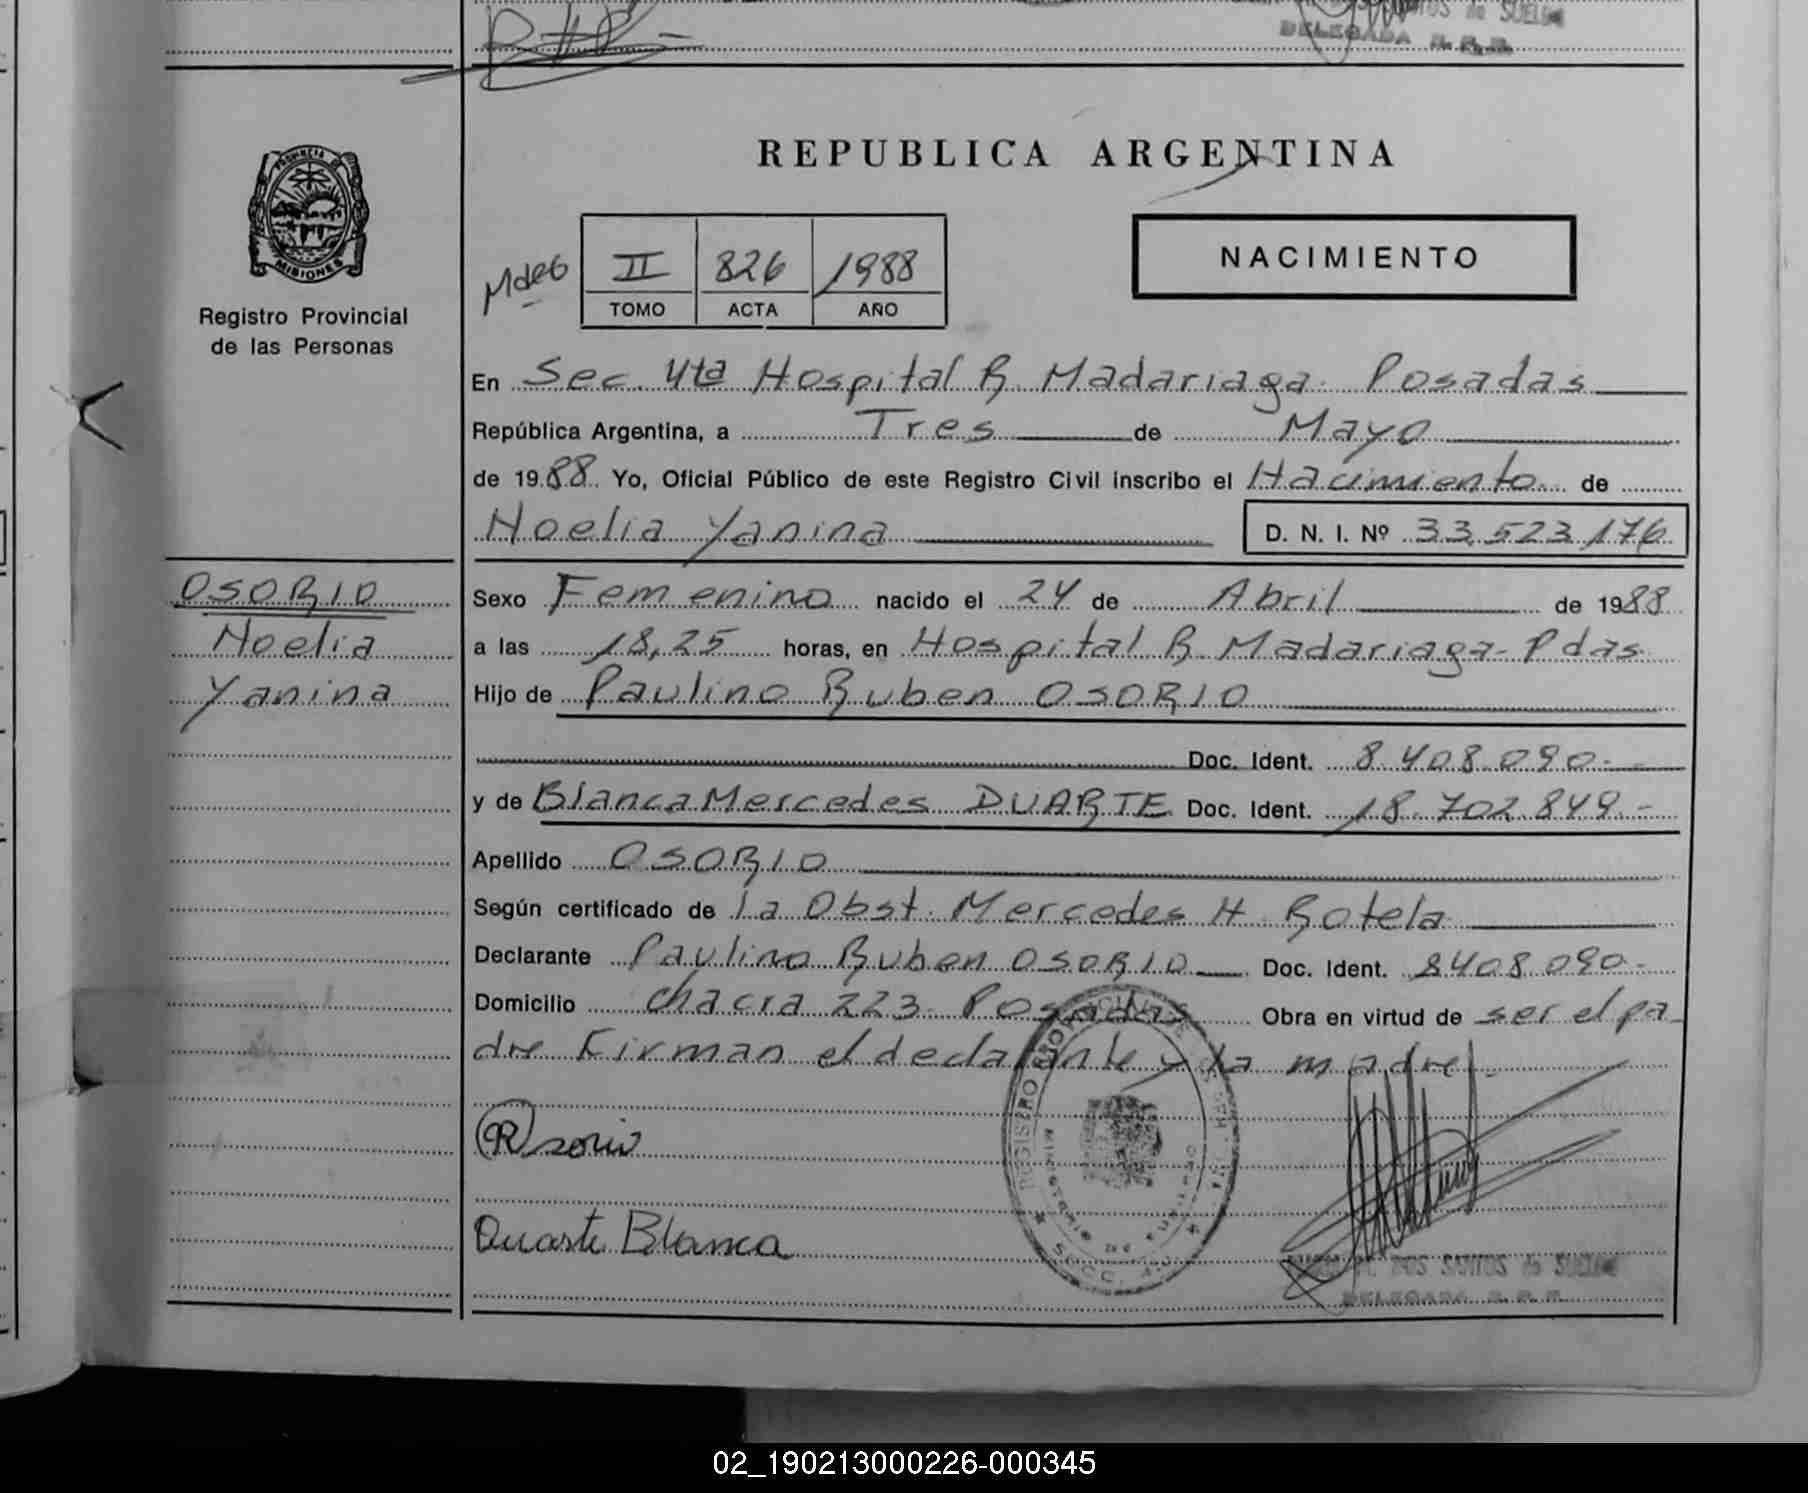 SANTOS de SUELDO
DELEGADA R. P. P.
PROVINCIA DE
MISIONES
Registro Provincial
de las Personas
REPUBLICA ARGENTINA
NACIMIENTO
II 826 1988
TOMO ACTA AÑO
En Sec. 4ta Hospital R. Madariaga. Posadas
República Argentina, a Tres de Mayo
de 1988 Yo, Oficial Público de este Registro Civil inscribo el Nacimiento de
Noelia Yanina D. N. I. Nº 33.523.176
OSORIO
Noelia
Yanina
Sexo Femenino nacido el 24 de Abril de 1988
a las 18,25 horas, en Hospital R. Madariaga - Pdas.
Hijo de Paulino Ruben OSORIO
Doc. Ident. 8.408.090.-
y de Blanca Mercedes DUARTE Doc. Ident. 18.702.849.-
Apellido OSORIO
Según certificado de la Obst. Mercedes H. Rotela
Declarante Paulino Ruben OSORIO Doc. Ident. 8408.090-
Domicilio chacra 223 - Posadas Obra en virtud de ser el pa
dre Firman el declarante y la madre.-
Osorio
Duarte Blanca
REGISTRO PROVINCIAL DE LAS PERSONAS
MINISTERIO DE
DOS SANTOS de SUELDO
DELEGADA R. P. P.
02_190213000226-000345